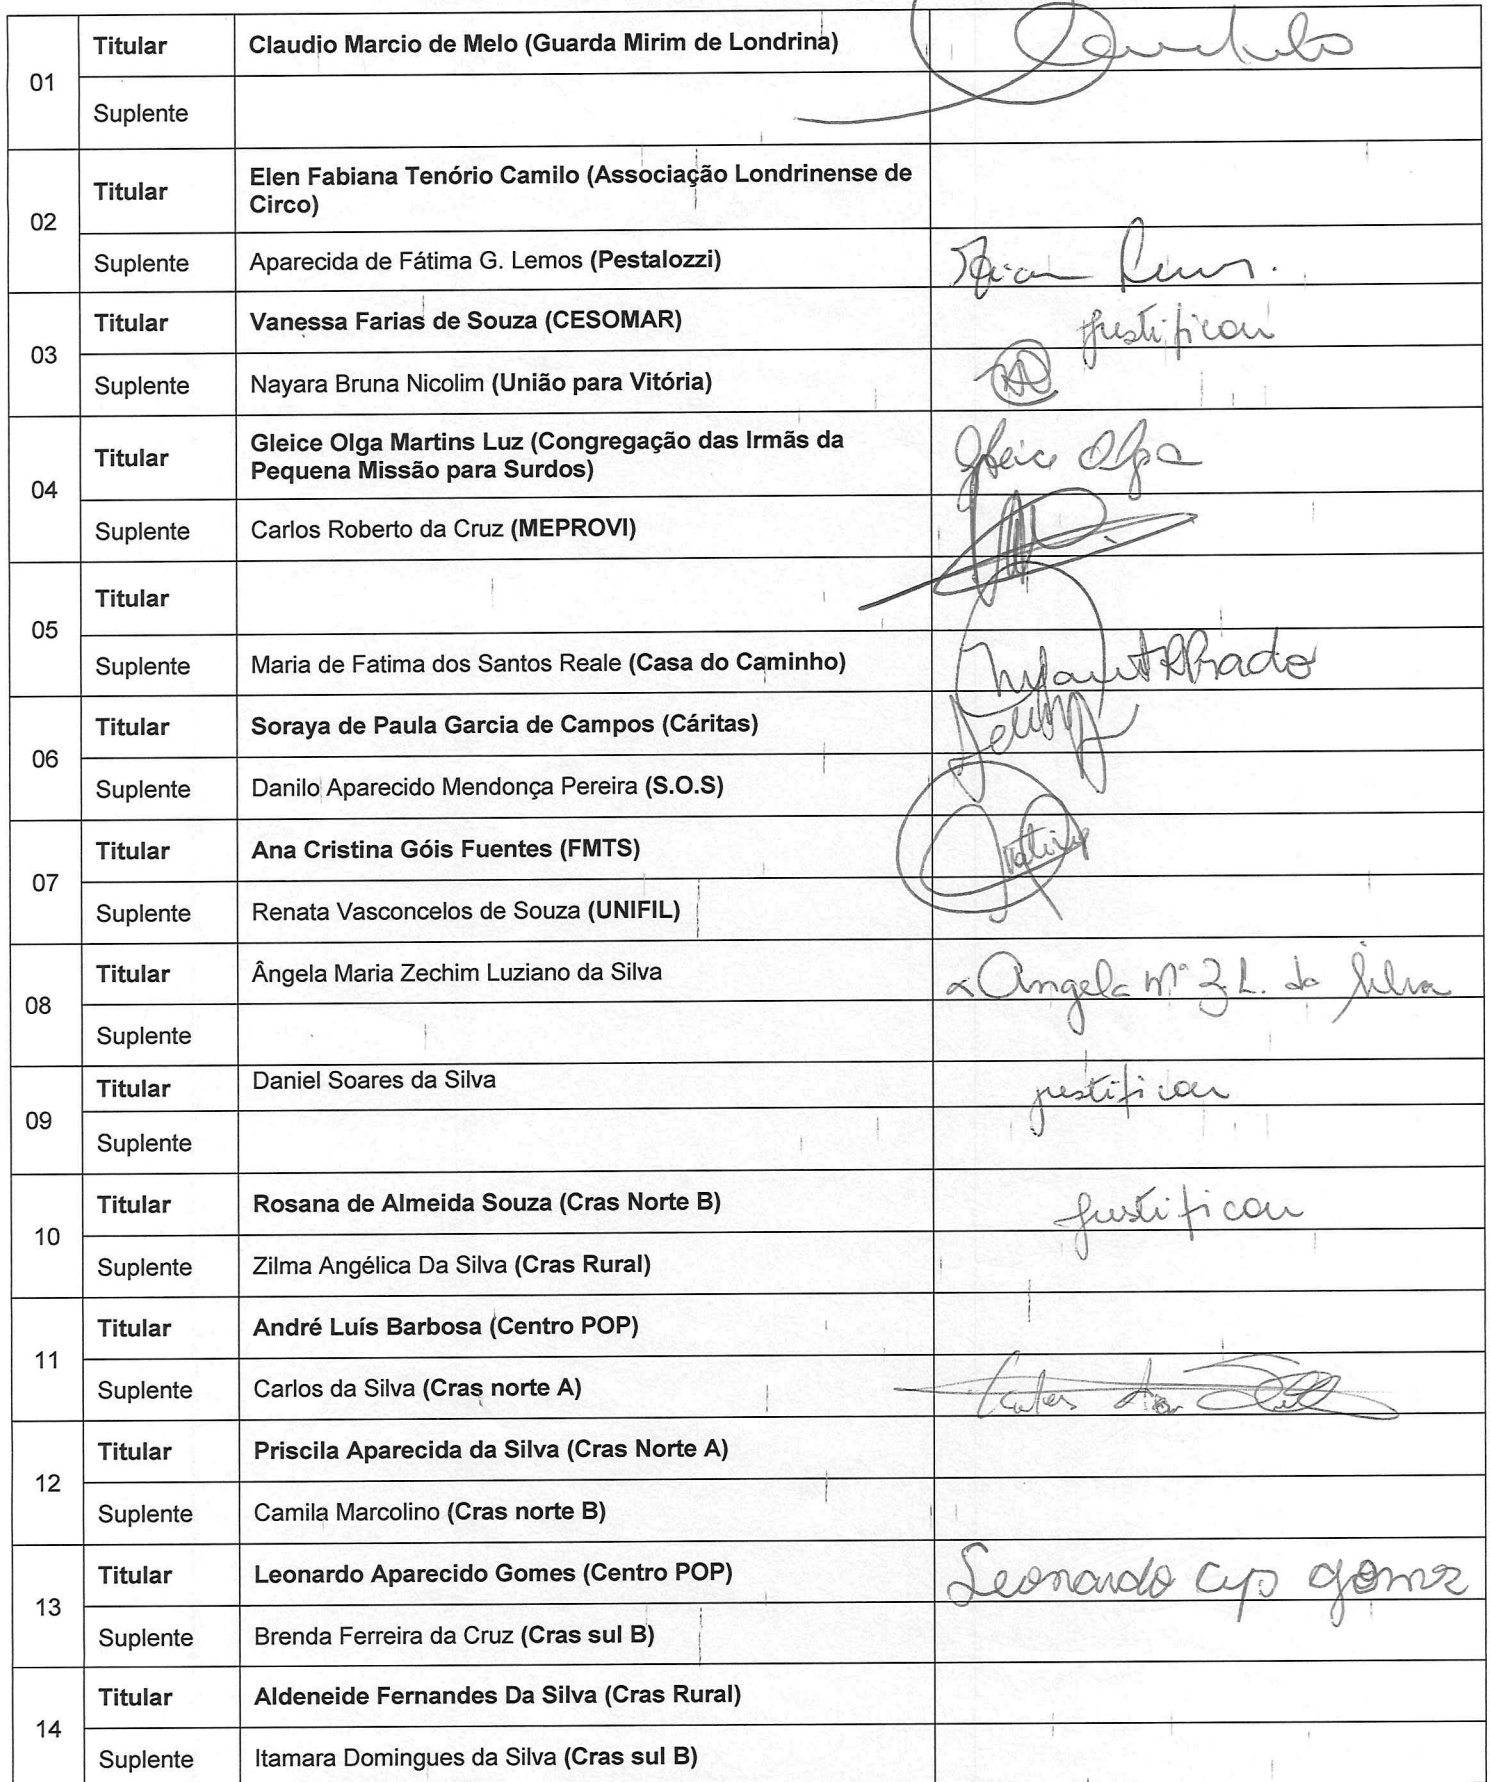 01
Titular Claudio Marcio de Melo (Guarda Mirim de Londrina)
Suplente
02
Titular Elen Fabiana Tenório Camilo (Associação Londrinense de
Circo)
Suplente Aparecida de Fátima G. Lemos (Pestalozzi)
03
Titular Vanessa Farias de Souza (CESOMAR) justificou
Suplente Nayara Bruna Nicolim (União para Vitória)
04
Titular Gleice Olga Martins Luz (Congregação das Irmãs da
Pequena Missão para Surdos) Gleice Olga
Suplente Carlos Roberto da Cruz (MEPROVI)
05
Titular
Suplente Maria de Fatima dos Santos Reale (Casa do Caminho)
06
Titular Soraya de Paula Garcia de Campos (Cáritas)
Suplente Danilo Aparecido Mendonça Pereira (S.O.S)
07
Titular Ana Cristina Góis Fuentes (FMTS)
Suplente Renata Vasconcelos de Souza (UNIFIL)
08
Titular Ângela Maria Zechim Luziano da Silva Angela Mª Z. L. da Silva
Suplente
09
Titular Daniel Soares da Silva justificou
Suplente
10
Titular Rosana de Almeida Souza (Cras Norte B) justificou
Suplente Zilma Angélica Da Silva (Cras Rural)
11
Titular André Luís Barbosa (Centro POP)
Suplente Carlos da Silva (Cras norte A) Carlos da
12
Titular Priscila Aparecida da Silva (Cras Norte A)
Suplente Camila Marcolino (Cras norte B)
13
Titular Leonardo Aparecido Gomes (Centro POP) Leonardo
Suplente Brenda Ferreira da Cruz (Cras sul B)
14
Titular Aldeneide Fernandes Da Silva (Cras Rural)
Suplente Itamara Domingues da Silva (Cras sul B)